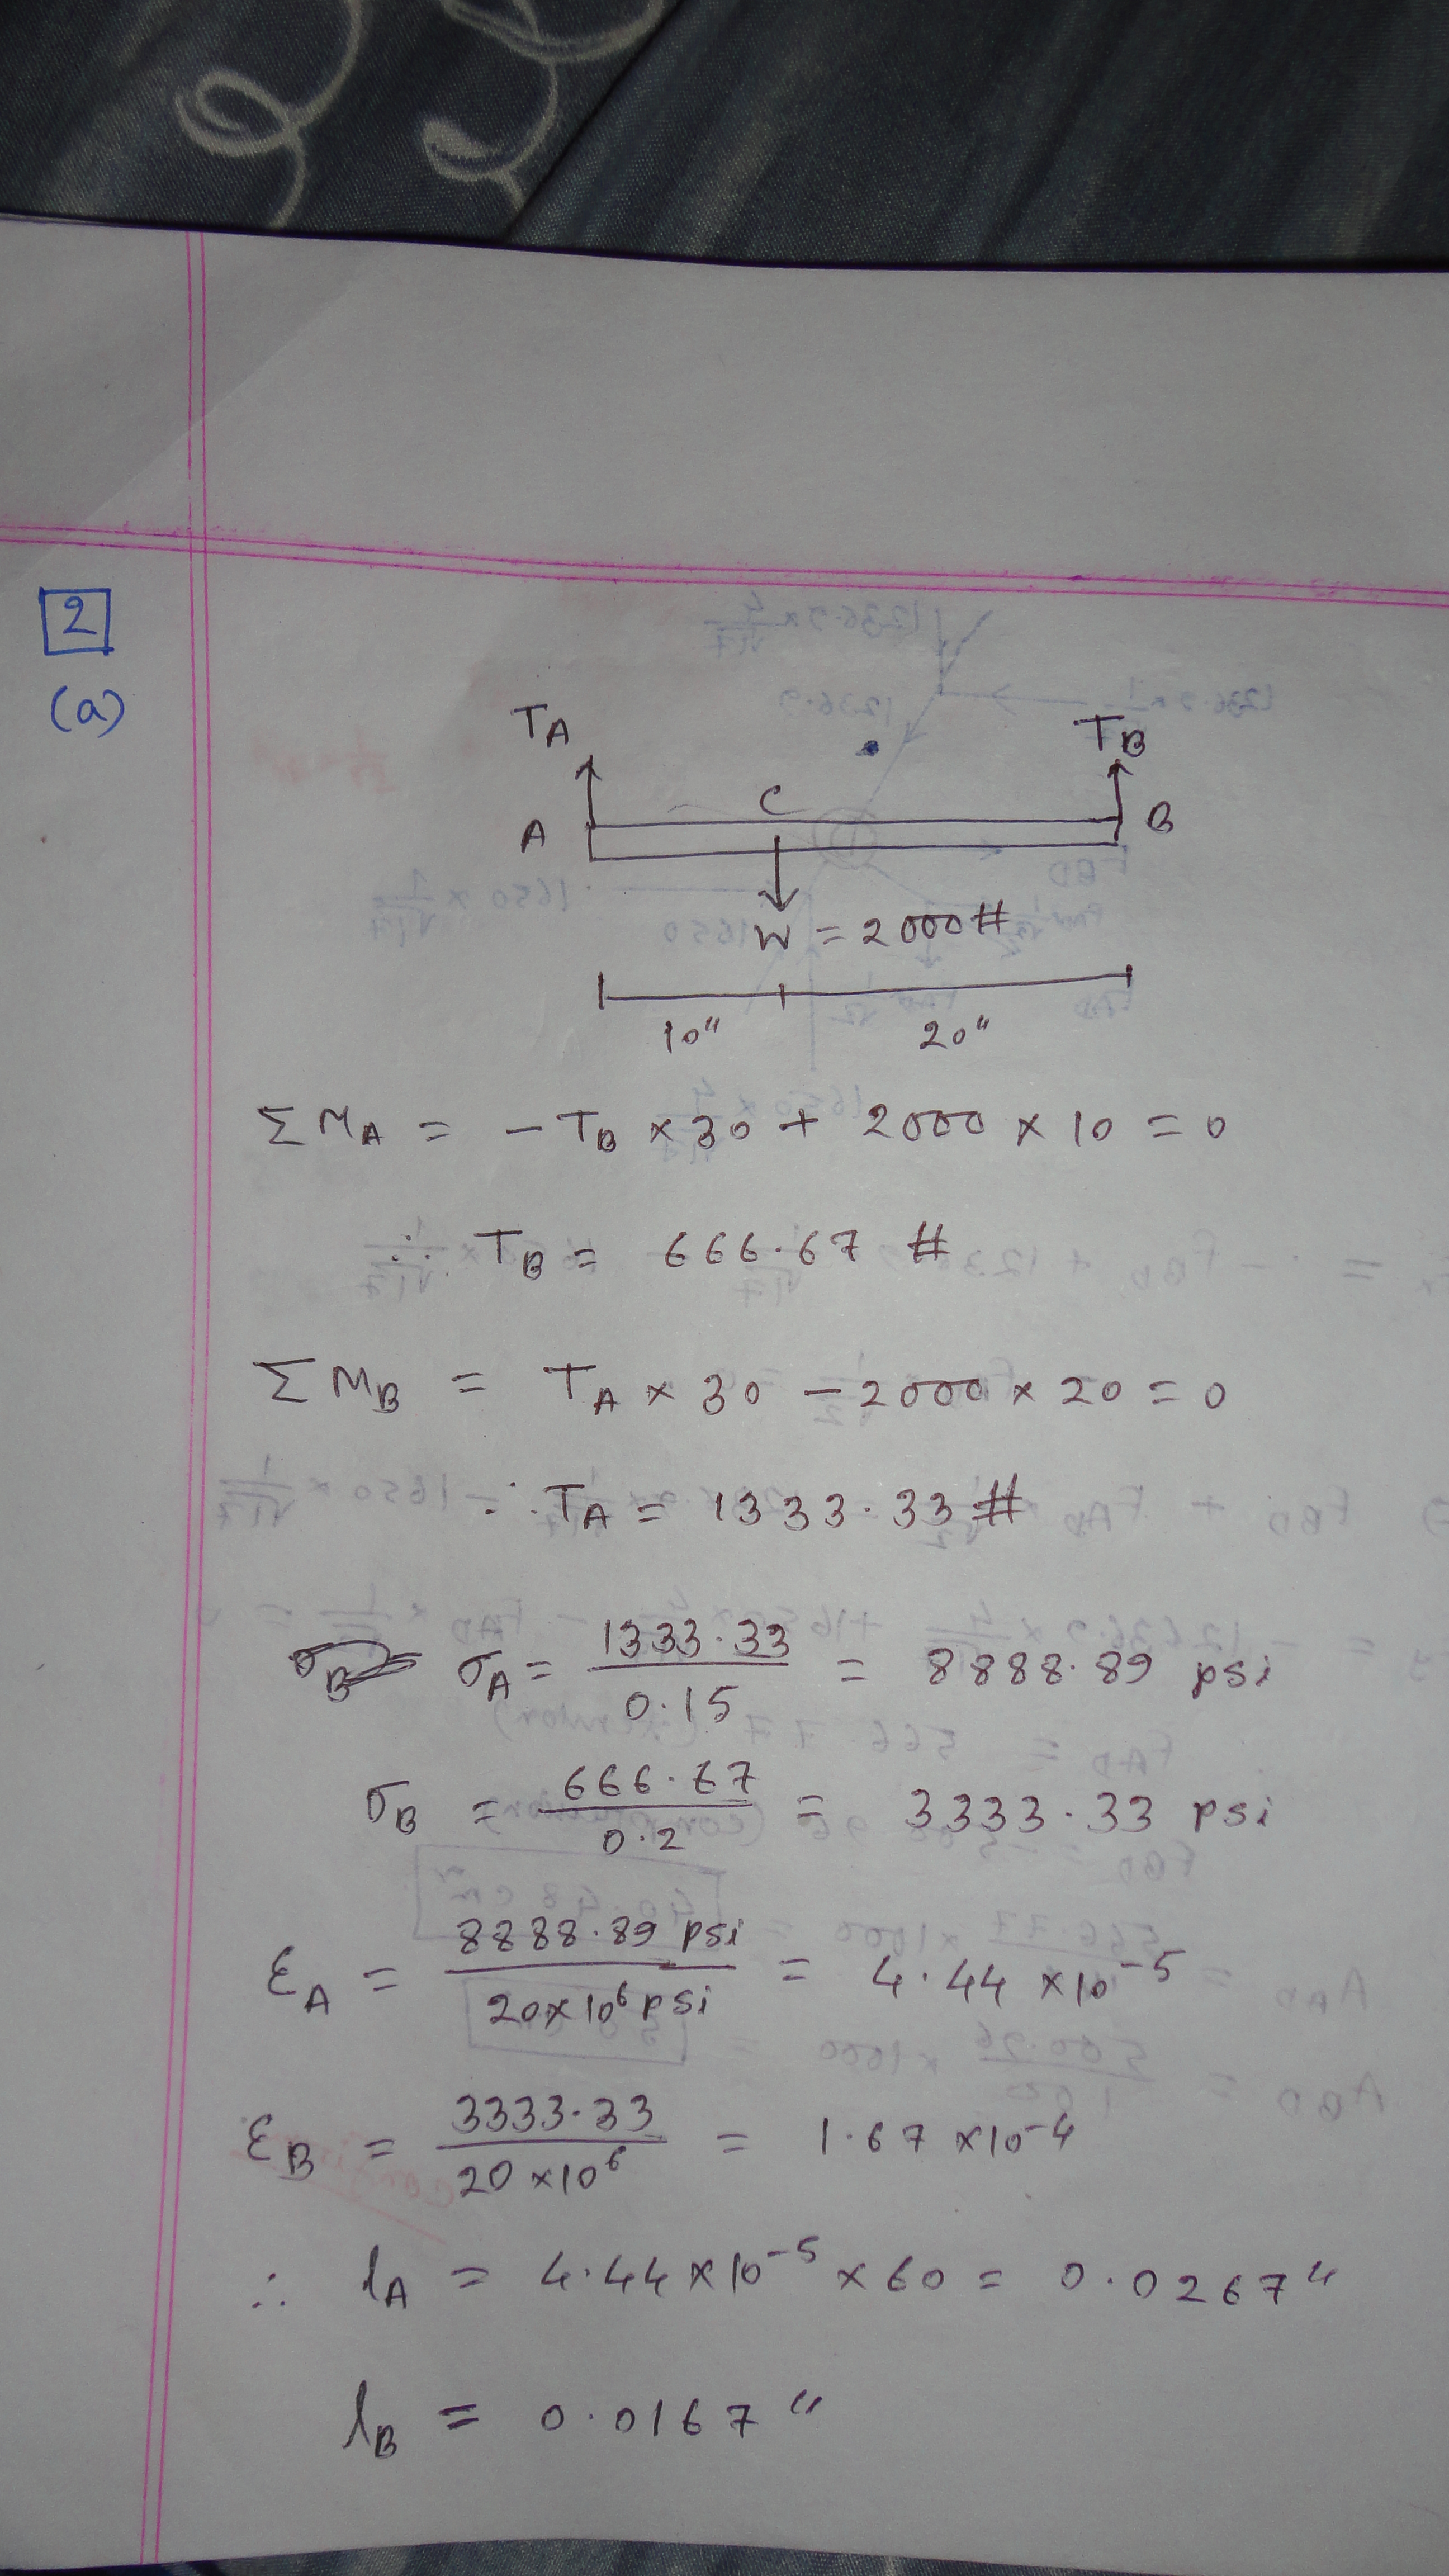 2
(a)
TA TB
A C B
W = 2000#
10" 20"
ΣMA = - TB × 30 + 2000 × 10 = 0
∴ TB = 666.67 #
ΣMB = TA × 30 - 2000 × 20 = 0
∴ TA = 1333.33 #
σA = 1333.33 / 0.15 = 8888.89 psi
σB = 666.67 / 0.2 = 3333.33 psi
εA = 8888.89 psi / 20×10⁶ psi = 4.44 ×10⁻⁵
εB = 3333.33 / 20 ×10⁶ = 1.67 ×10⁻⁴
∴ lA = 4.44 ×10⁻⁵ × 60 = 0.0267"
lB = 0.0167"